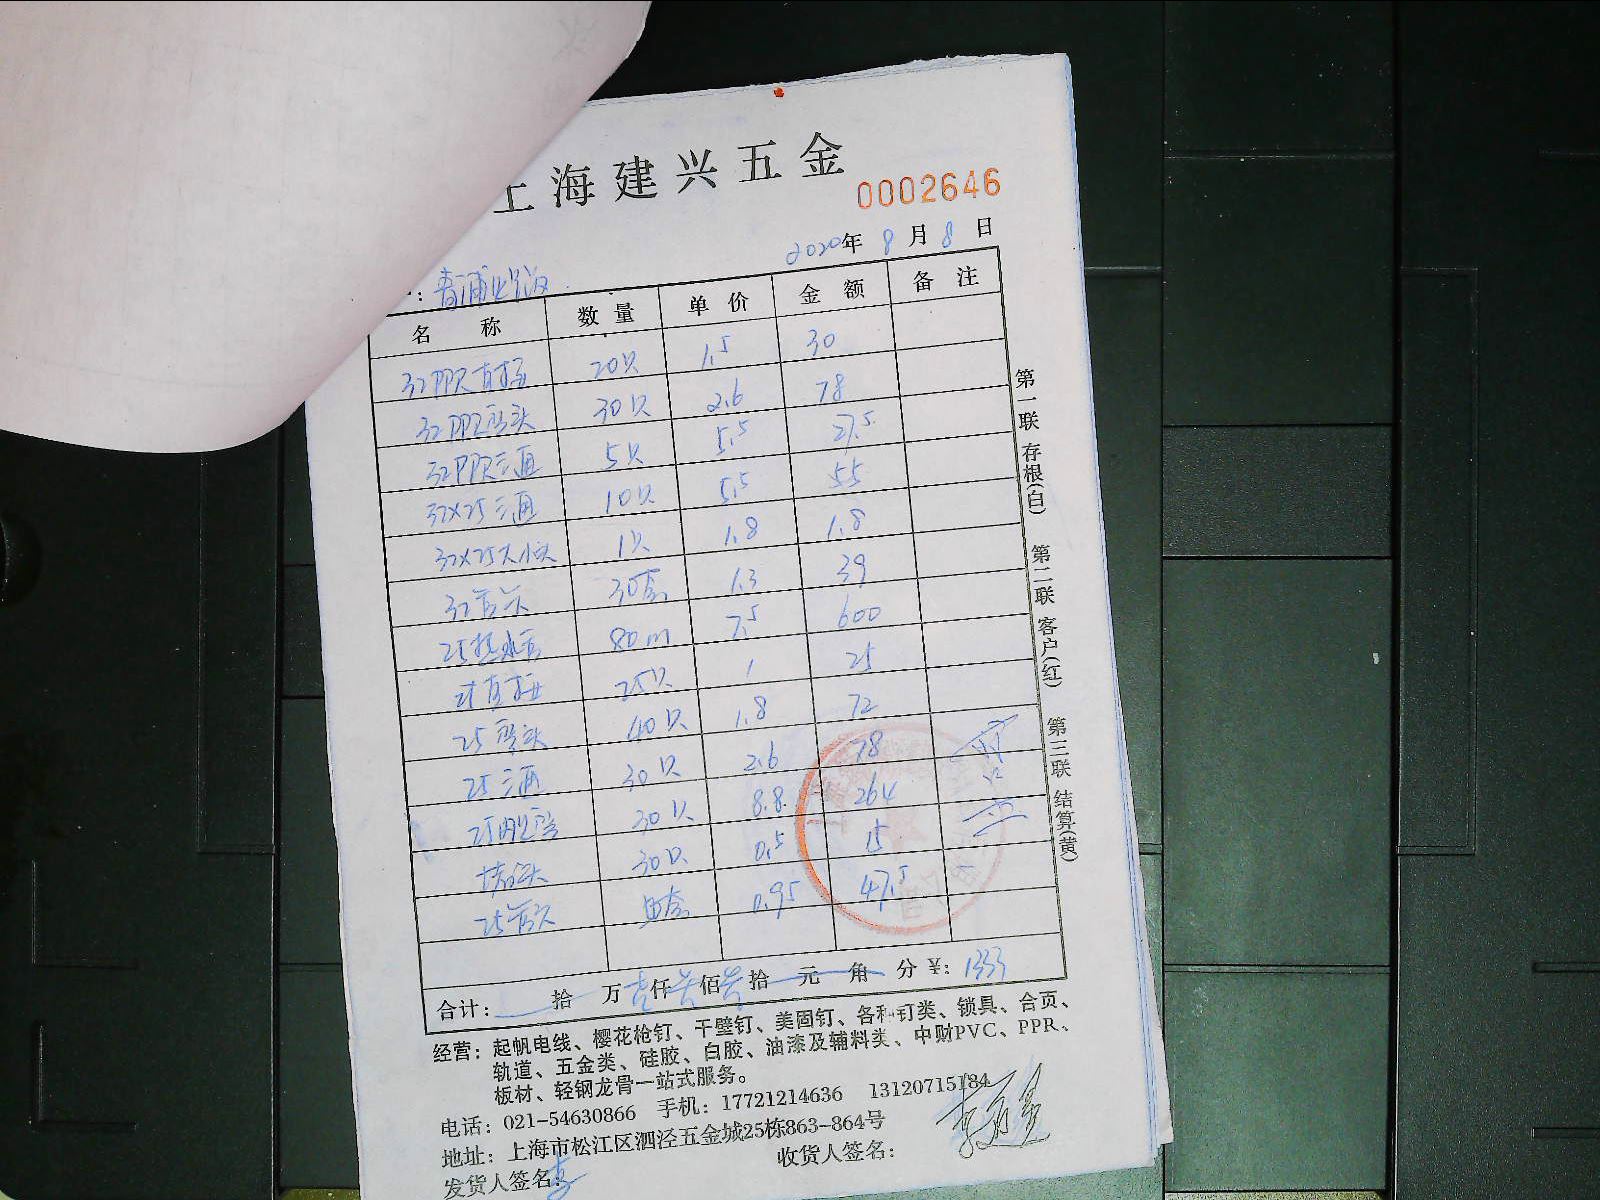 上海建兴五金
0002646
2020年 8 月 8 日
名 称 数 量 单 价 金 额 备 注
32PPR直接 20只 1.5 30
32PPR弯头 30只 2.6 78
32PPR三通 5只 5.5 27.5
32×25三通 10只 5.5 55
32×25大小头 1只 1.8 1.8
32 30 1.3 39
25热水管 80m 7.5 600
25直接 25只 1 25
25弯头 40只 1.8 72
25三通 30只 2.6 78
25内丝弯 30只 8.8 264
堵头 30只 0.5 15
25 0.95 47.5
合计: 拾 万 仟 佰 拾 元 角 分 ¥: 1333
经营: 起帆电线、樱花枪钉、干壁钉、美固钉、各种钉类、锁具、合页、
轨道、五金类、硅胶、白胶、油漆及辅料类、中财PVC、PPR、
板材、轻钢龙骨一站式服务。
电话: 021-54630866 手机: 17721214636 13120715184
地址: 上海市松江区泗泾五金城25栋863-864号
发货人签名: 收货人签名:
第一联 存根(白) 第二联 客户(红) 第三联 结算(黄)